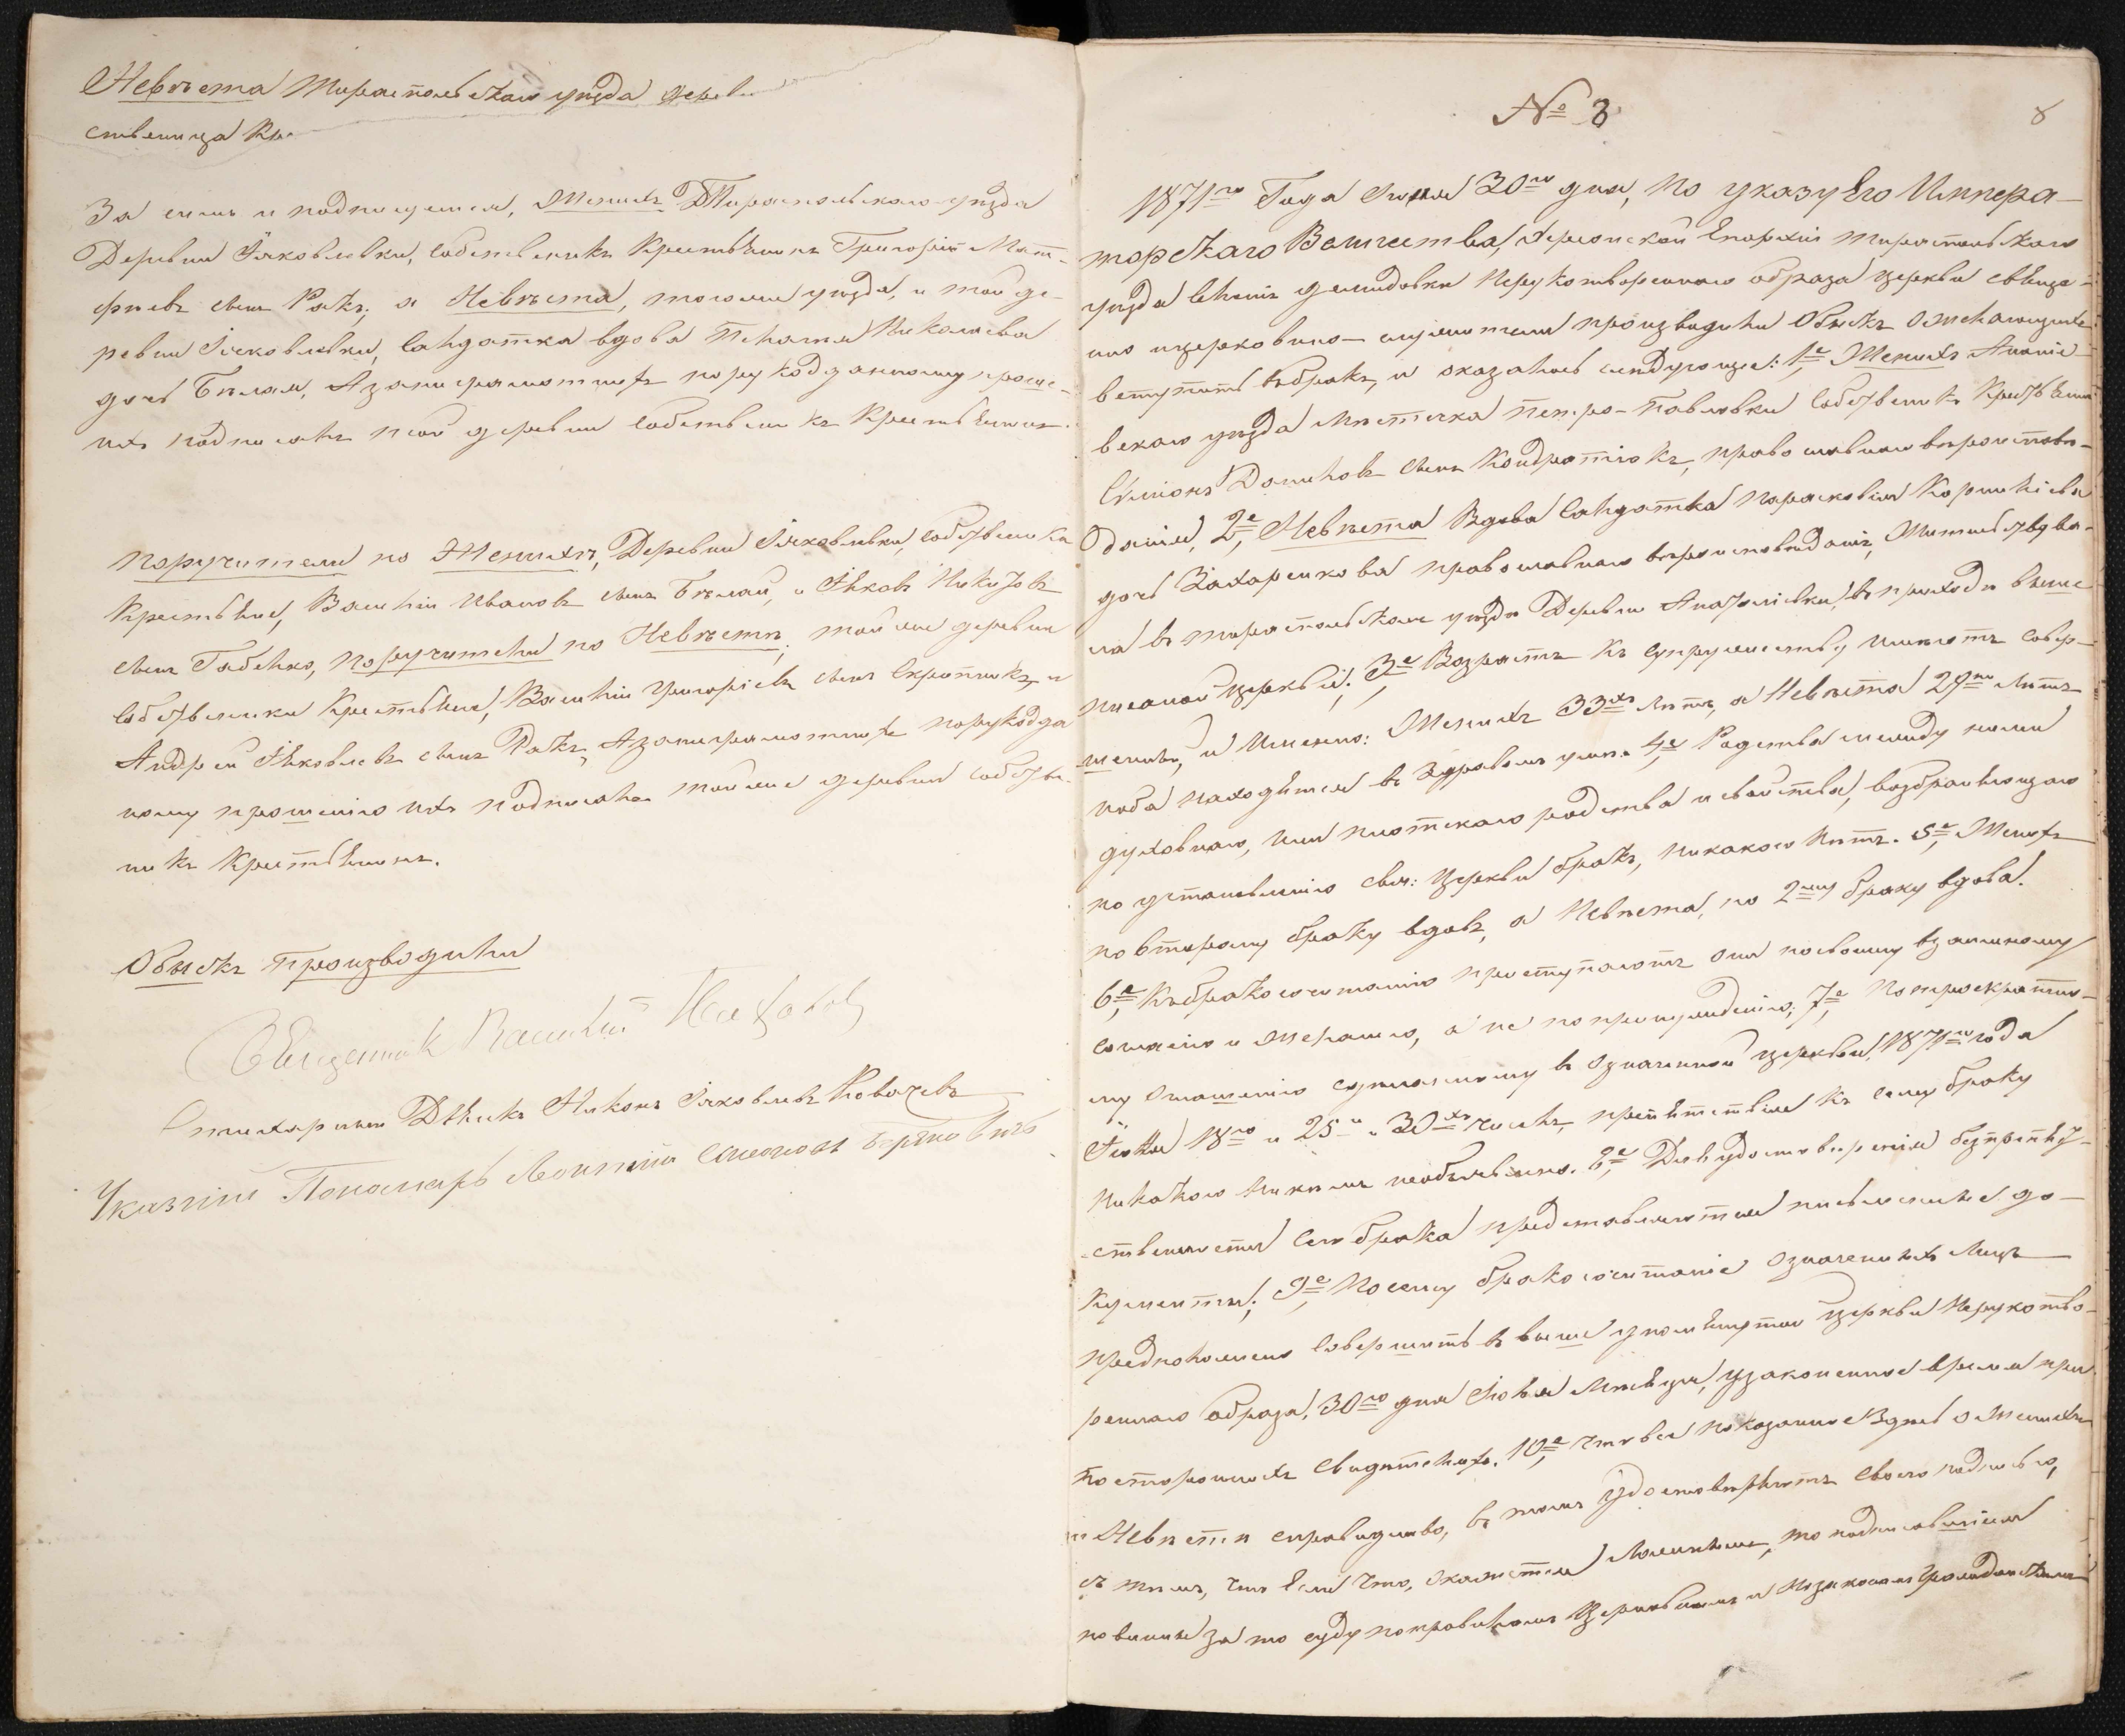 Невѣста Тираспольскаго уѣзда дерев
ственица Кр
За симъ и подпишемся, Женихъ Тираспольскаго уѣзда
Деревни Яковлевки, собственикъ Крестьянинъ Григорій Мат-
фиевъ сынъ Ракъ; а Невѣста, того же уѣзда, и той де-
ревни Яковлевки, салдатка вдова Пелагия Николаева
дочь Бѣлая, А за неграмотныхъ по рукоданному проше-
нию ихъ подписалъ той деревни собственикъ Крестьянинъ
Поручители по Женихѣ, Деревни Яковлевки, собственики
Крестьяне, Василій Ивановъ сынъ Бѣлый, и Яковъ Никитовъ
сынъ Бабенко, поручители по Невѣстѣ, той же деревни
собственики Крестьяне, Василій Григорьевъ сынъ Скрипникъ, и
Андрей Яковлевъ сынъ Ракъ, А за неграмотныхъ по рукода
ному прошенію ихъ подписалъ той же деревни собстве
никъ Крестьянинъ.
Обыскъ производили
Священникъ Василий
Стихарный Дьякъ Никонъ Яковлевъ Ковачевъ
Указный Пономарь Леонтий Симоновъ
№ 8
8
1871го Года Июня 30го дня, по указу Его Импера-
торскаго Величества, Херсонской Епархіи Тираспольскаго
уѣзда селенія Демидовки Нерукотвореннаго образа церкви свяще-
но и церковно-служители производили Обыскъ о желающихъ
вступить въ бракъ, и оказалось слѣдующее: 1е, Женихъ Ананіе-
вскаго уѣзда мѣстечка Петро-Павловки собственикъ Крестьянинъ
Симіонъ Даниловъ сынъ Кондратюкъ, православнаго вѣроисповѣ-
данія, 2е, Невѣста Вдова салдатка Параскевия Корниліева
дочь Захаренкова православнаго вѣроисповѣданія, Жительствова-
ла въ Тираспольскомъ уѣздѣ Деревни Анатолievки, въ приходѣ выше
писаной церкви; 3е Возрастъ къ супружеству имѣютъ совер-
шенный, и Именно: Женихъ 33хъ лѣтъ, а Невѣста 29ть лѣтъ
и оба находятся въ здравомъ умѣ. 4е, Родства между ними
духовнаго, или плотскаго родства и свойства, возбраняющаго
по установленію свя: церкви бракъ, никакого нѣтъ. 5е, Женихъ
по второму браку вдовъ, а Невѣста, по 2му браку вдова.
6е, Къ бракосочетанію приступаютъ они по своему взаимному
согласію и желанію, а не по принужденію; 7е По троекратно-
му оглашенію сдѣланному въ означенной церкви, 1871го года
Июня 18го и 25го и 30хъ числъ, препятствія къ сему браку
никакого никѣмъ необъявлено. 8е, Для удостовѣренія безпрепят-
ственности сего брака представляются письменные до-
кументы; 9е По сему бракосочетаніе означенныхъ лицъ
предположено совершить въ выше упомянутой церкви Нерукотво-
реннаго образа, 30го дня Июня мѣсяца, узаконенное время при
постороннихъ свидѣтеляхъ. 10е, что все показанное здѣсь о Женихѣ
и Невѣстѣ справедливо, въ томъ удостовѣряютъ своею подписью,
съ тѣмъ, что если что, окажется ложнымъ, то подписавшіеся
повинны за то суду по правиламъ Церковнымъ и по законамъ Гражданскимъ